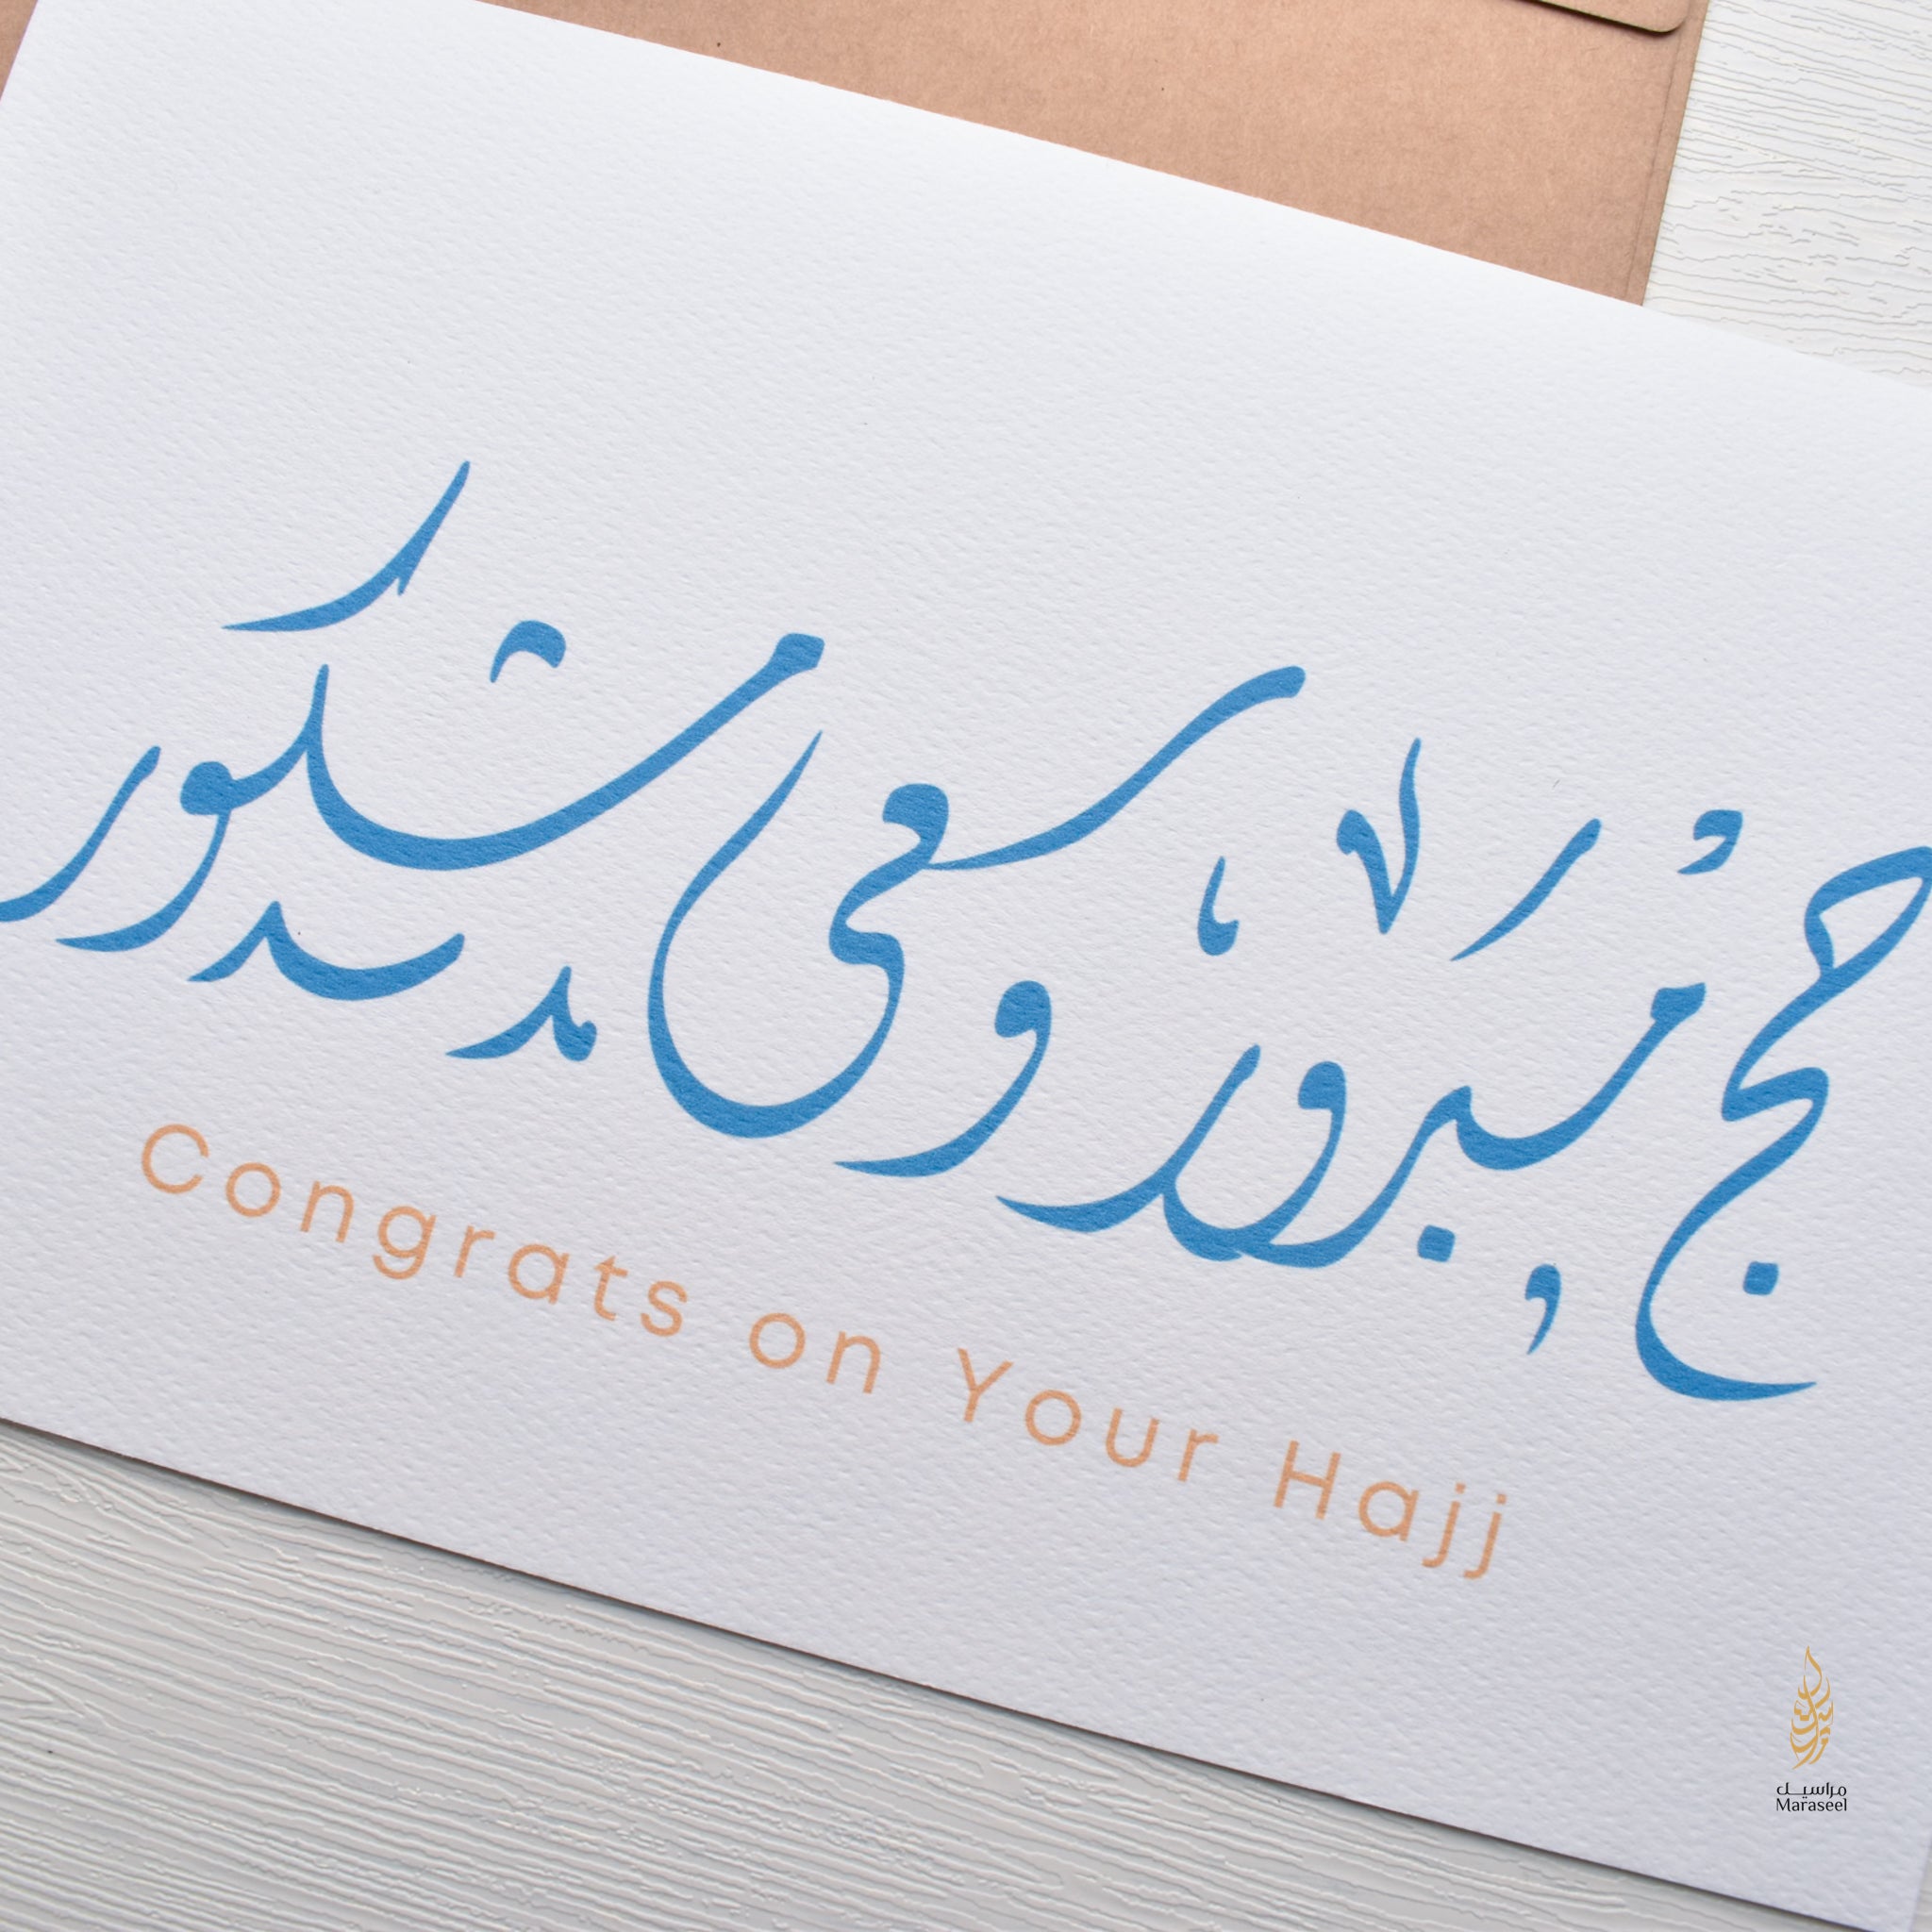 حج مبرور وسعي مشكور
Congrats on Your Hajj
مراسيل
Maraseel